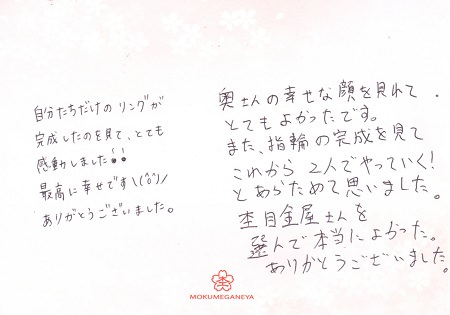 自分たちだけのリングが
完成したのを見て、とても
感動しました!!
最高に幸せです\(^o^)/
ありがとうございました。
奥さんの幸せな顔を見れて
とてもよかったです。
また、指輪の完成を見て
これから2人でやっていく!
とあらためて思いました。
杢目金屋さんを
選んで本当によかった。
ありがとうございました。
杢
MOKUMEGANEYA